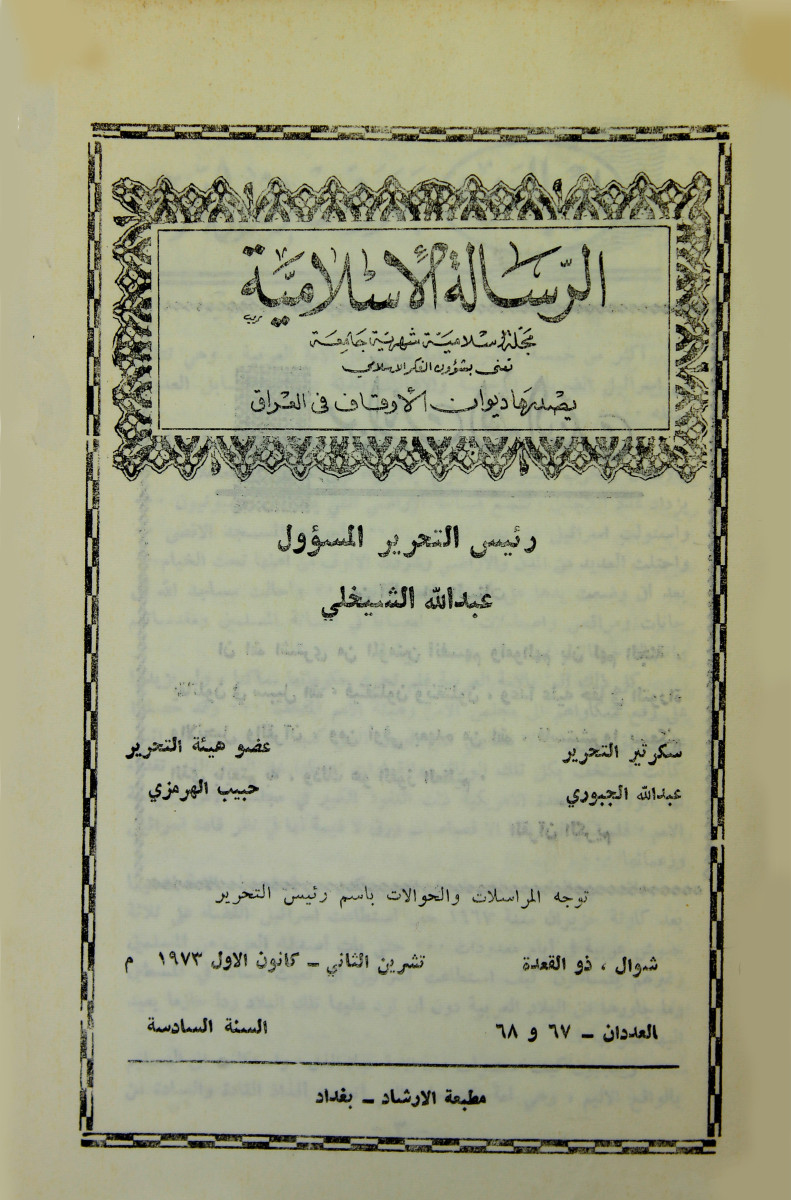 الرسالة الإسلامية
مجلة إسلامية شهرية جامعة
تعنى بشؤون الفكر الاسلامي
يصدرها ديوان الأوقاف في العراق
رئيس التحرير المسؤول
عبدالله الشيخلي
سكرتير التحرير
عبدالله الجبوري
عضو هيئة التحرير
حبيب الهرمزي
توجه المراسلات والحوالات باسم رئيس التحرير
شوال ، ذو القعدة تشرين الثاني ــ كانون الاول ١٩٧٣ م
العددان ــ ٦٧ و ٦٨ السنة السادسة
مطبعة الارشاد ــ بغداد